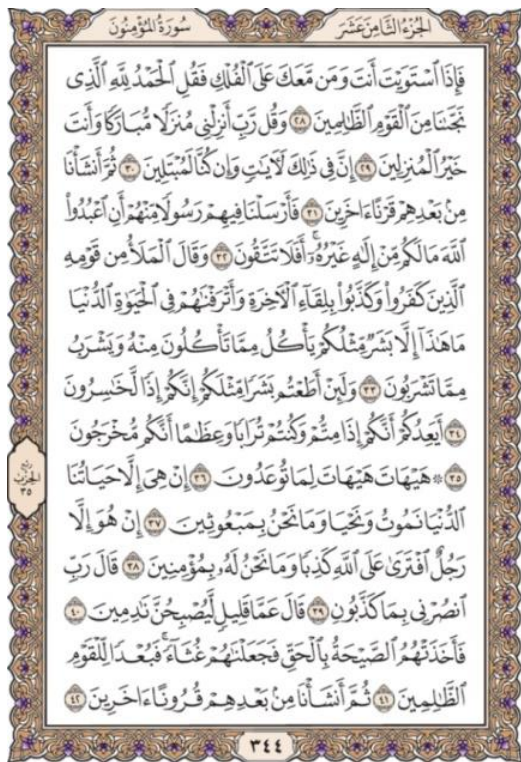 سُورَةُ المُؤْمِنُونَ
الجُزْءُ الثَّامِنُ عَشَرَ
فَإِذَا ٱسْتَوَيْتَ أَنتَ وَمَن مَّعَكَ عَلَى ٱلْفُلْكِ فَقُلِ ٱلْحَمْدُ لِلَّهِ ٱلَّذِى
نَجَّىٰنَا مِنَ ٱلْقَوْمِ ٱلظَّٰلِمِينَ ٢٨ وَقُل رَّبِّ أَنزِلْنِى مُنزَلًا مُّبَارَكًا وَأَنتَ
خَيْرُ ٱلْمُنزِلِينَ ٢٩ إِنَّ فِى ذَٰلِكَ لَءَايَٰتٍ وَإِن كُنَّا لَمُبْتَلِينَ ٣٠ ثُمَّ أَنشَأْنَا
مِنۢ بَعْدِهِمْ قَرْنًا ءَاخَرِينَ ٣١ فَأَرْسَلْنَا فِيهِمْ رَسُولًا مِّنْهُمْ أَنِ ٱعْبُدُوا۟
ٱللَّهَ مَا لَكُم مِّنْ إِلَٰهٍ غَيْرُهُۥٓ ۚ أَفَلَا تَتَّقُونَ ٣٢ وَقَالَ ٱلْمَلَأُ مِن قَوْمِهِ
ٱلَّذِينَ كَفَرُوا۟ وَكَذَّبُوا۟ بِلِقَآءِ ٱلْءَاخِرَةِ وَأَتْرَفْنَٰهُمْ فِى ٱلْحَيَوٰةِ ٱلدُّنْيَا
مَا هَٰذَآ إِلَّا بَشَرٌ مِّثْلُكُمْ يَأْكُلُ مِمَّا تَأْكُلُونَ مِنْهُ وَيَشْرَبُ
مِمَّا تَشْرَبُونَ ٣٣ وَلَئِنْ أَطَعْتُم بَشَرًا مِّثْلَكُمْ إِنَّكُمْ إِذًا لَّخَٰسِرُونَ
٣٤ أَيَعِدُكُمْ أَنَّكُمْ إِذَا مِتُّمْ وَكُنتُمْ تُرَابًا وَعِظَٰمًا أَنَّكُم مُّخْرَجُونَ
٣٥ ۞ هَيْهَاتَ هَيْهَاتَ لِمَا تُوعَدُونَ ٣٦ إِنْ هِىَ إِلَّا حَيَاتُنَا
ٱلدُّنْيَا نَمُوتُ وَنَحْيَا وَمَا نَحْنُ بِمَبْعُوثِينَ ٣٧ إِنْ هُوَ إِلَّا
رَجُلٌ ٱفْتَرَىٰ عَلَى ٱللَّهِ كَذِبًا وَمَا نَحْنُ لَهُۥ بِمُؤْمِنِينَ ٣٨ قَالَ رَبِّ
ٱنصُرْنِى بِمَا كَذَّبُونِ ٣٩ قَالَ عَمَّا قَلِيلٍ لَّيُصْبِحُنَّ نَٰدِمِينَ ٤٠
فَأَخَذَتْهُمُ ٱلصَّيْحَةُ بِٱلْحَقِّ فَجَعَلْنَٰهُمْ غُثَآءً ۚ فَبُعْدًا لِّلْقَوْمِ
ٱلظَّٰلِمِينَ ٤١ ثُمَّ أَنشَأْنَا مِنۢ بَعْدِهِمْ قُرُونًا ءَاخَرِينَ ٤٢
ربع
الحزب
٣٥
٣٤٤